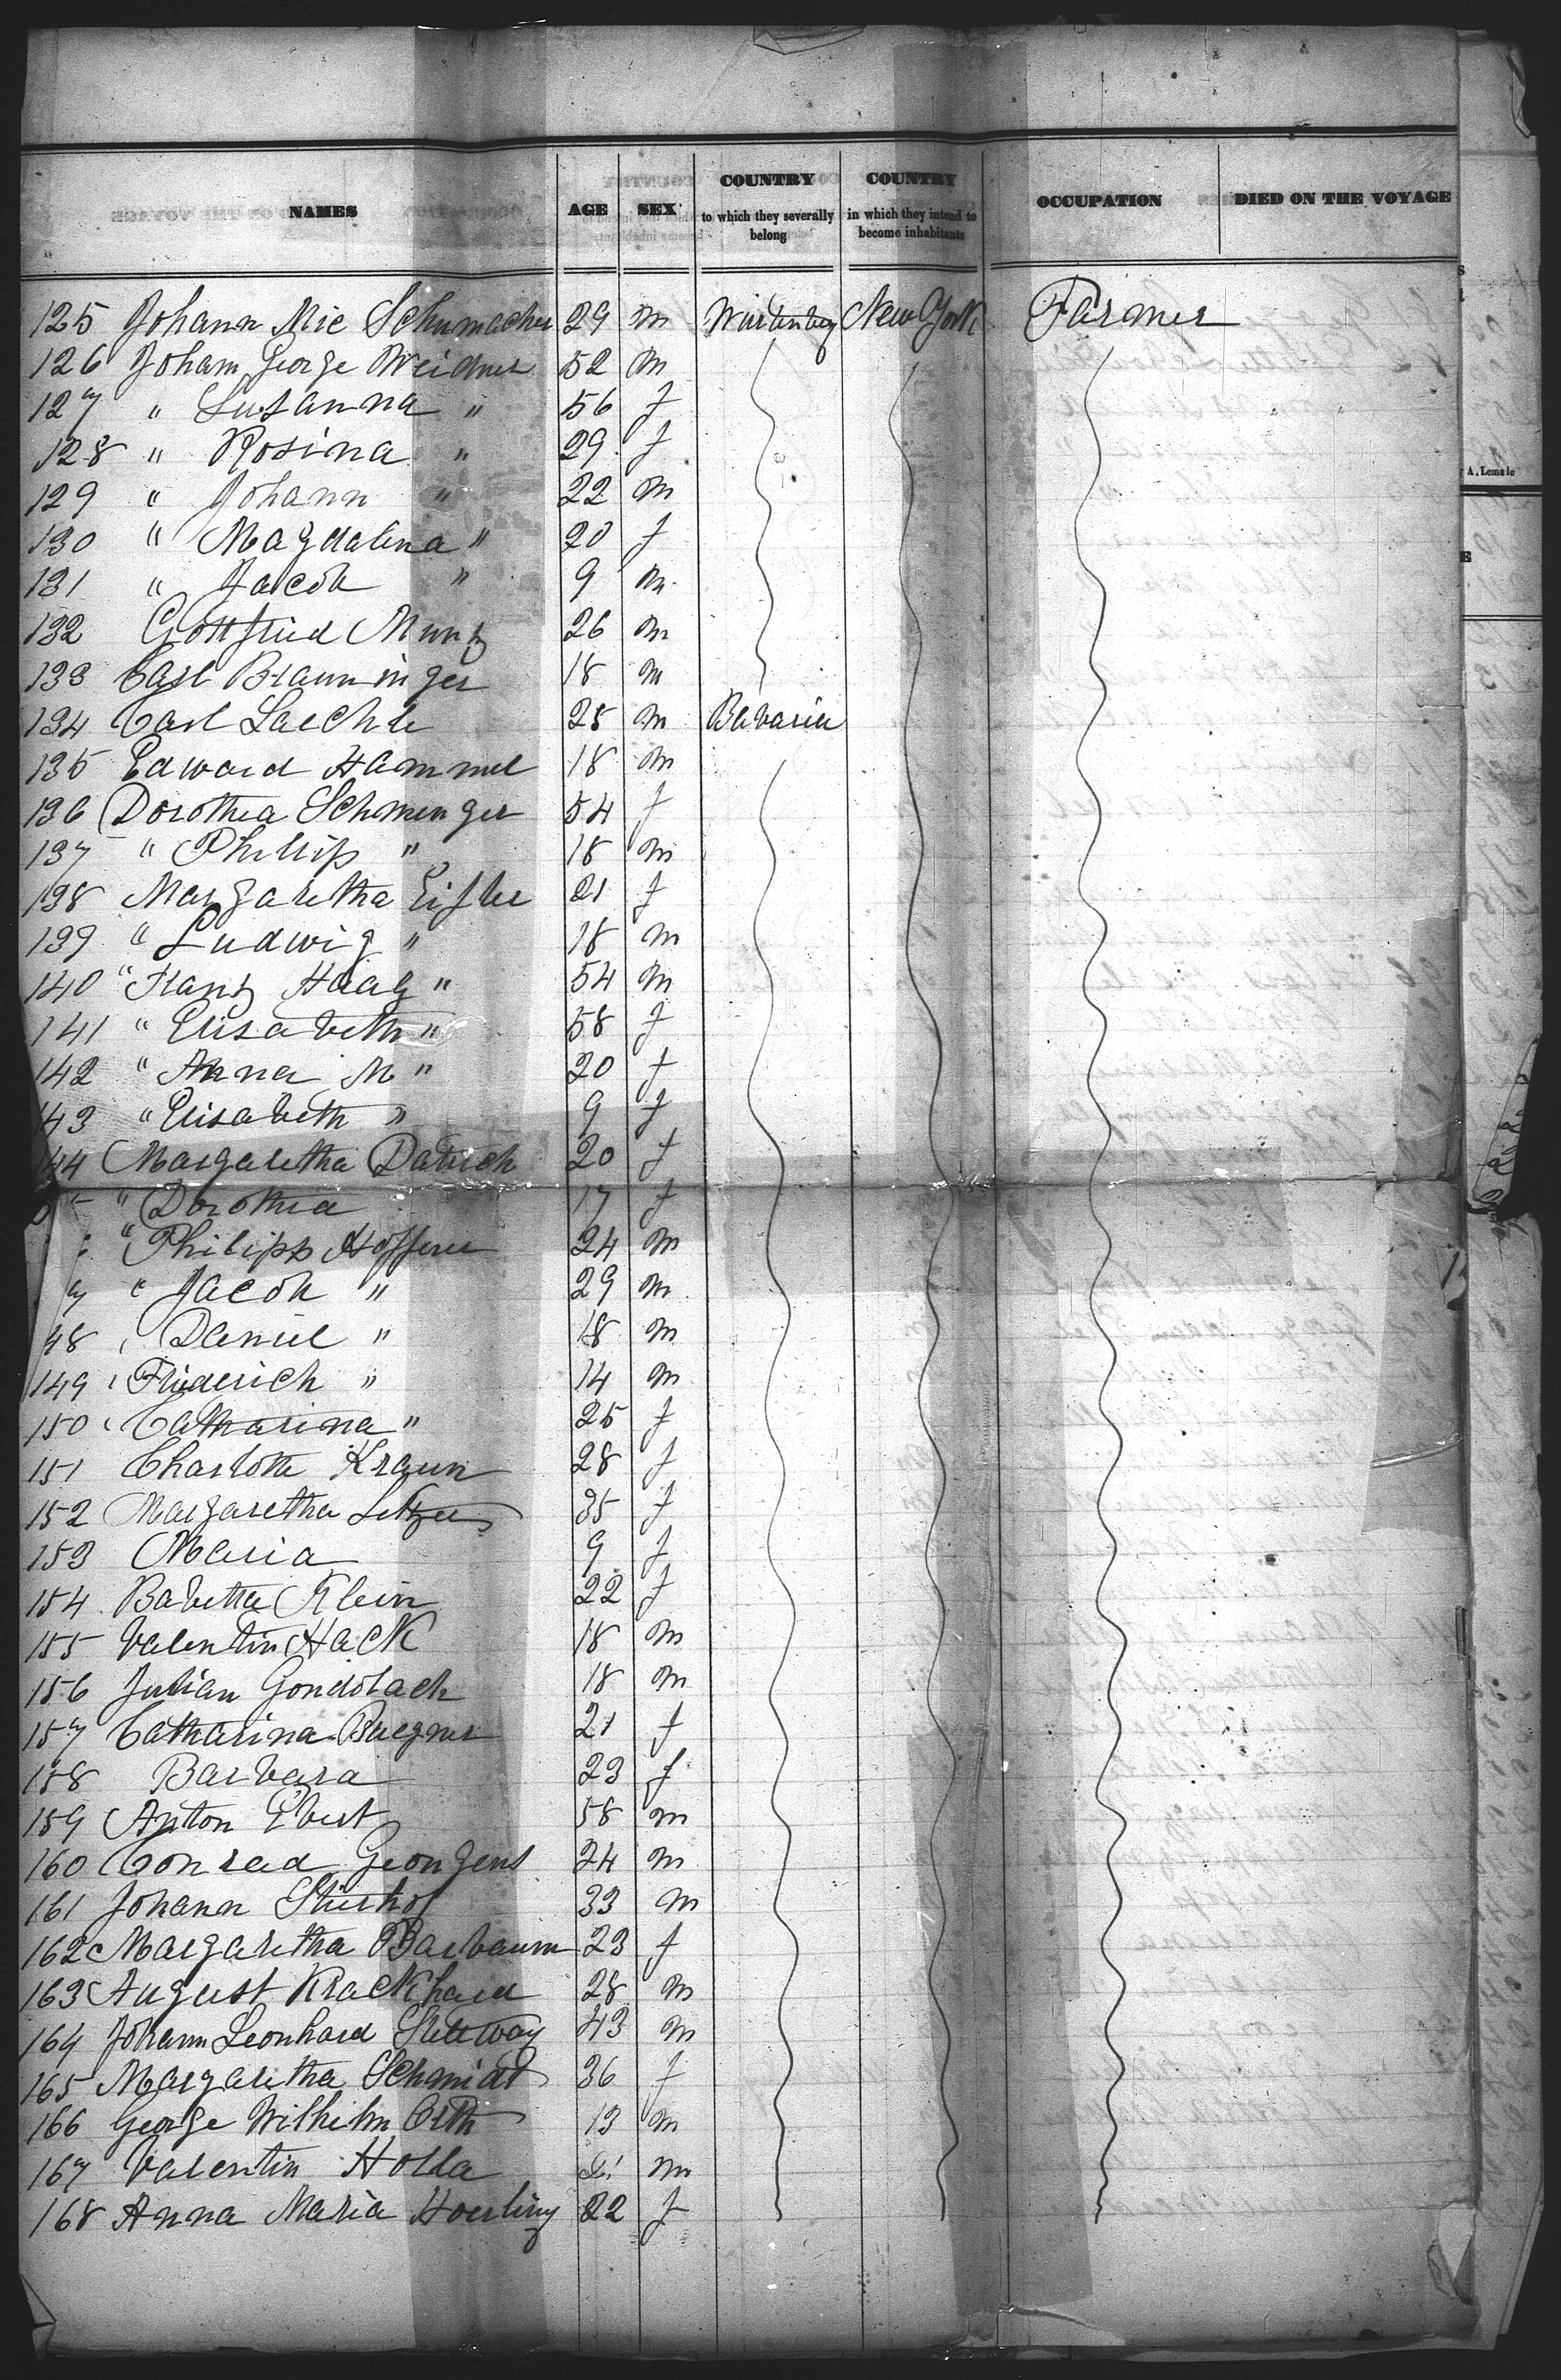 NAMES AGE SEX COUNTRY to which they severally belong COUNTRY in which they intend to become inhabitants OCCUPATION DIED ON THE VOYAGE
125 Johann Mic Schumacher 29 m Würtenberg New York Farmer
126 Johann George Weidner 52 m
127 " Susanna " 56 f
128 " Rosina " 29 f
129 " Johann " 22 m
130 " Magdalena " 20 f
131 " Jacob " 9 m
132 Gottfried Muntz 26 m
133 Carl Brauninger 18 m
134 Carl Laechle 25 m Bavaria
135 Edward Hammel 18 m
136 Dorothea Schmenger 54 f
137 " Philip " 18 m
138 Margaretha 21 f
139 " Ludwig " 18 m
140 " Frantz Haag " 54 m
141 " Elisabeth " 58 f
142 " Anna M " 20 f
143 " Elisabeth " 9 f
144 Margaretha 20 f
" Dorothea 17 f
" Philipp 24 m
" Jacob " 29 m
48 " Daniel " 18 m
149 " Friderich " 14 m
150 " Catharina " 25 f
151 Charlotte Kraun 28 f
152 Margaretha 35 f
153 Maria 9 f
154 Babetta Klein 22 f
155 Valentin Hack 18 m
156 Julian Gondolach 18 m
157 Catharina 21 f
158 Barbara 23 f
159 Anton Ebert 58 m
160 Conrad Geongens 24 m
161 Johann 33 m
162 Margaretha Barbaum 23 f
163 August Krackhard 28 m
164 Johann Leonhard 43 m
165 Margaretha Schmidt 36 f
166 George Wilhelm Orth 13 m
167 Valentin Holla m
168 Anna Maria Hoerling 22 f
A. Lemale